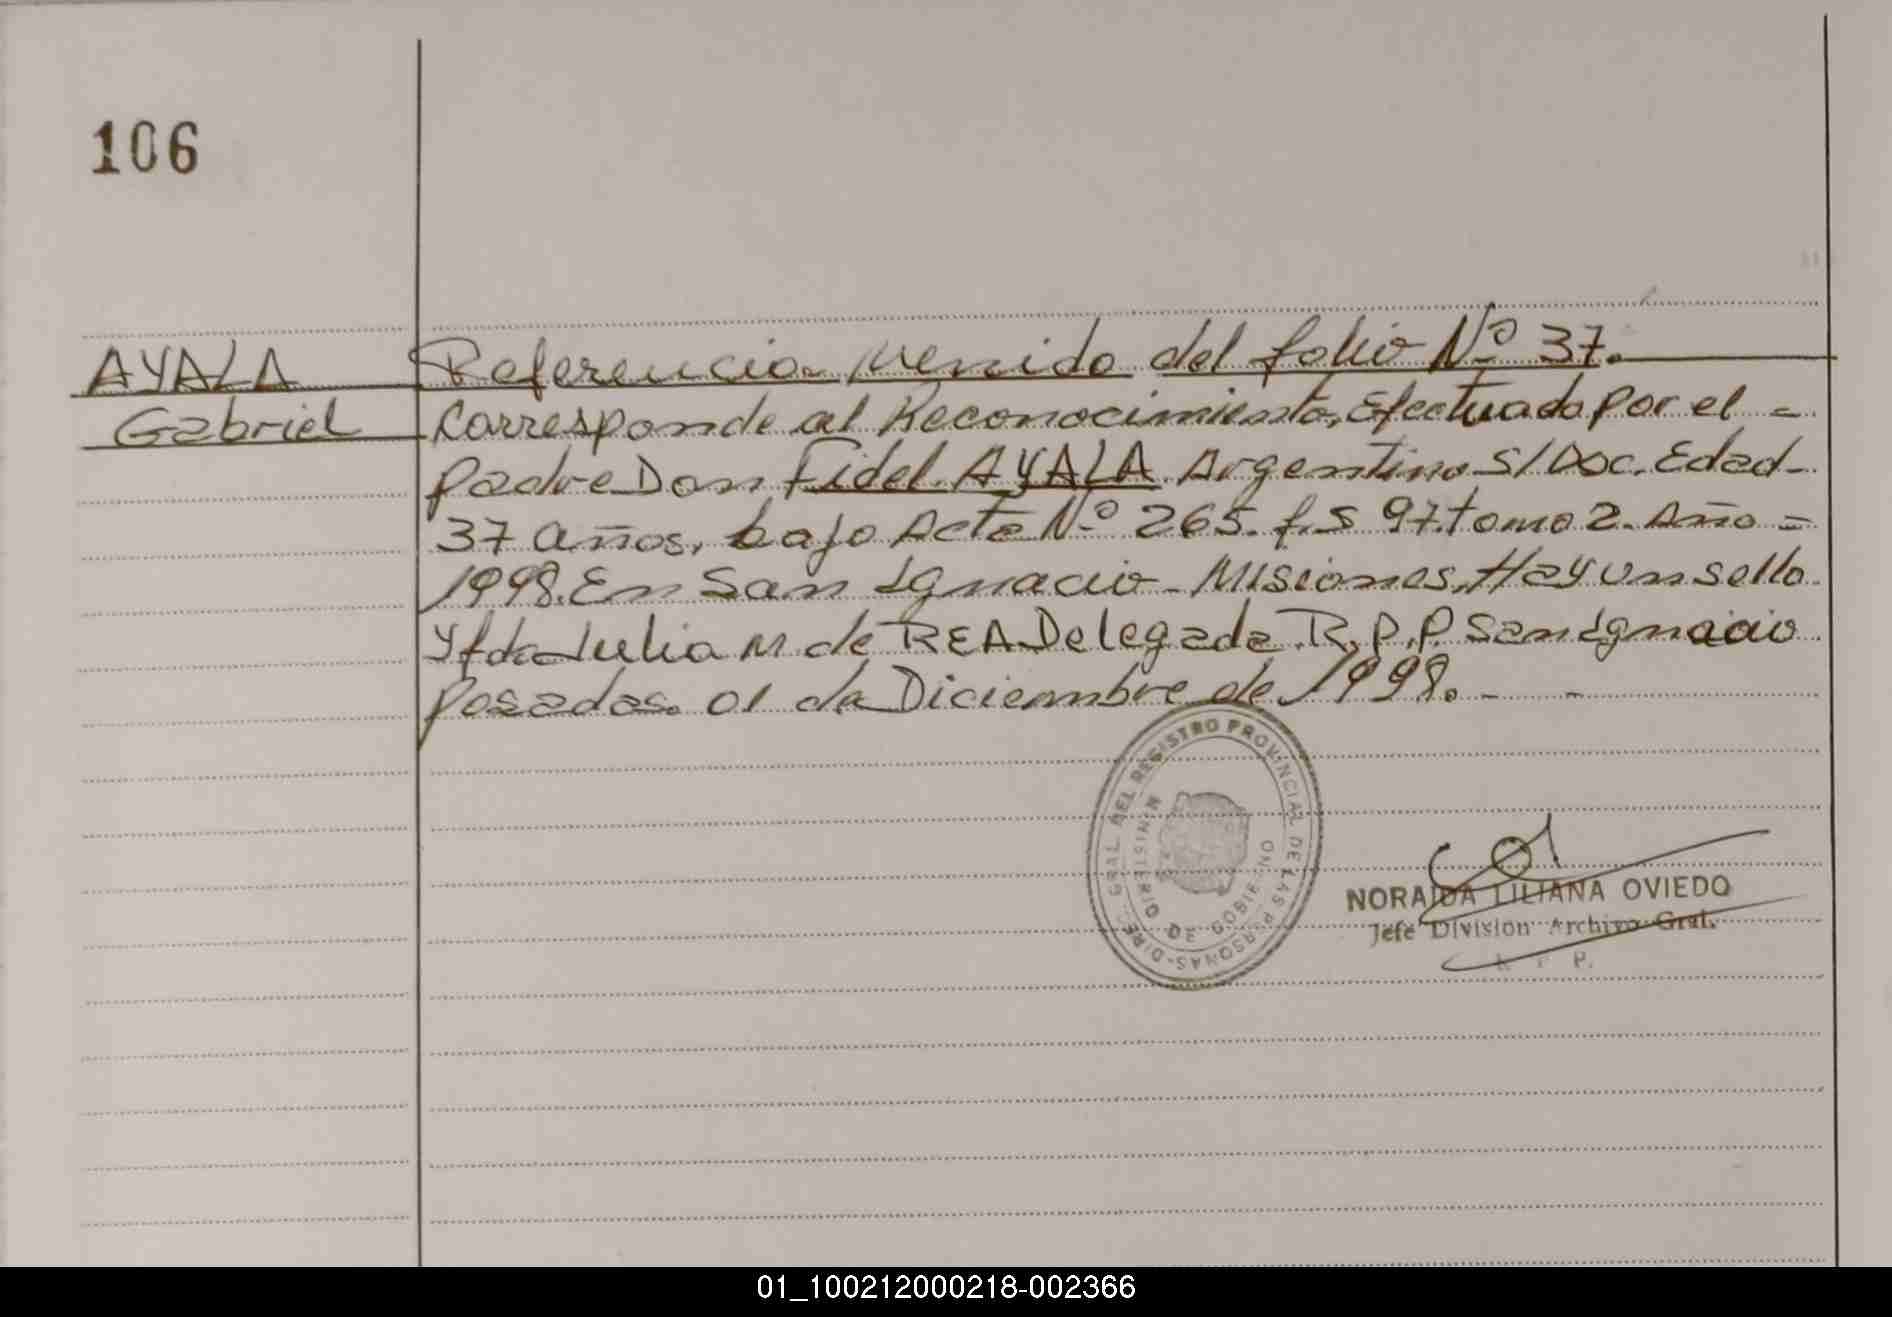 106
AYALA
Gabriel
Referencia venida del folio Nº 37.
Corresponde al Reconocimiento, Efectuado por el =
padre Don Fidel AYALA Argentino S/Doc. Edad-
37 años, bajo Acta Nº 265. f.s 97. tomo 2. Año =
1998. En San Ignacio - Misiones, Hay un sello
y fdo Julia M de REA Delegada R.P.P. San Ignacio
posadas. 01 de Diciembre de 1998. - -
DIREC. GRAL. DEL REGISTRO PROVINCIAL DE LAS PERSONAS-
MINISTERIO DE GOBIERNO
NORAIDA LILIANA OVIEDO
Jefe Division Archivo Gral.
R. P. P.
01_100212000218-002366